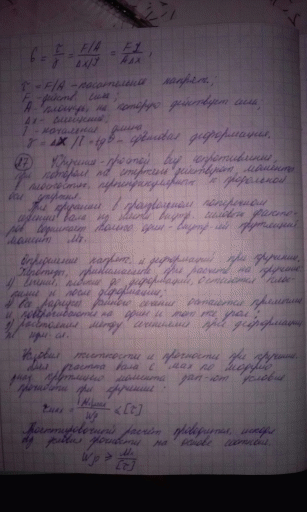 G = τ/γ = (F/A)/(Δx/l) = Fl/AΔx,
τ = F/A – касательное напряж.,
F – действ. сила;
A – площадь, на которую действует сила,
Δx – смещение;
l – начальная длина
γ = Δx/l = tgθ – сдвиговая деформация.
Кручение – простой вид сопротивления,
при котором на стержень действуют моменты
в плоскостях, перпендикулярных к продольной
оси стержня.
При кручении в произвольном поперечном
сечении вала из шести внутр. силовых факто-
ров возникает только один – внутр-ий крутящий
момент Mz.
Определение напряж. и деформаций при кручении.
Гипотезы, принимаемые при расчете на кручение:
1) сечения, плоские до деформации, остаются плос-
кими и после деформации;
2) все радиусы данного сечения остаются прямыми
и поворачиваются на один и тот же угол;
3) расстояния между сечениями при деформации
не изм-ся.
Условия жесткости и прочности при кручении
для участка вала с max по модулю
крутящего момента условие
прочности при кручении:
τmax = / Wp ≤ [τ]
Проектировочный расчет проводится исходя
из условия прочности на основе
Wp ≥ Mk/[τ]